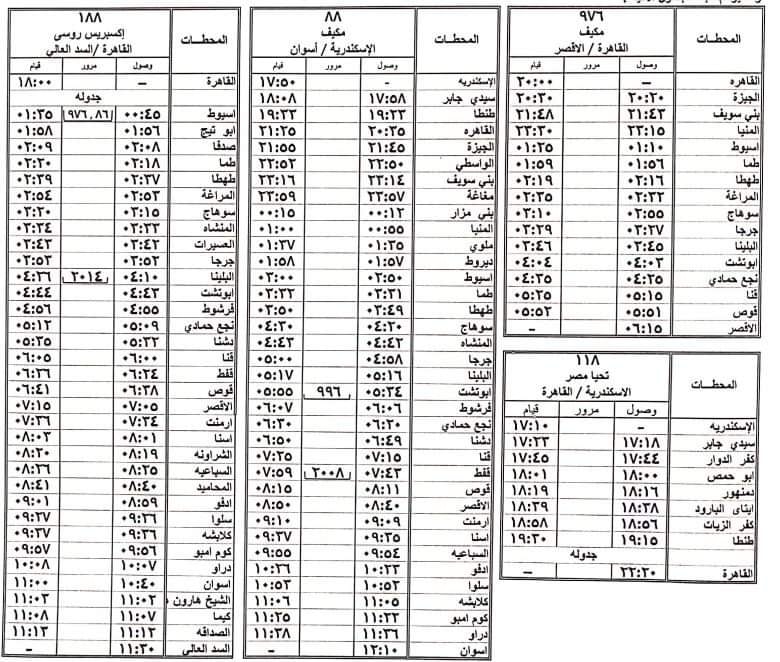 المحطــات
٩٧٦
مكيف
القاهرة / الاقصر
وصول مرور قيام
القاهره – ٢٠:٠٠
الجيزة ٢٠:٢٠ ٢٠:٣٠
بني سويف ٢١:٤٣ ٢١:٤٨
المنيا ٢٣:١٥ ٢٣:٣٠
اسيوط ٠١:١٠ ٠١:٢٥
طما ٠١:٥٦ ٠١:٥٩
طهطا ٠٢:١٦ ٠٢:١٩
المراغة ٠٢:٣٢ ٠٢:٣٥
سوهاج ٠٢:٥٥ ٠٣:١٠
جرجا ٠٣:٢٧ ٠٣:٢٩
البلينا ٠٣:٤٥ ٠٣:٤٦
ابوتشت ٠٤:٠٣ ٠٤:٠٤
نجع حمادي ٠٤:٢٥ ٠٤:٣٥
قنا ٠٥:١٥ ٠٥:٢٥
قوص ٠٥:٥١ ٠٥:٥٢
الاقصر ٠٦:١٥ –
المحطــات
١١٨
تحيا مصر
الاسكندرية / القاهرة
وصول مرور قيام
الإسكندريه – ١٧:١٠
سيدي جابر ١٧:١٨ ١٧:٢٣
كفر الدوار ١٧:٤٤ ١٧:٤٥
ابو حمص ١٨:٠٠ ١٨:٠١
دمنهور ١٨:١٦ ١٨:١٩
ايتاى البارود ١٨:٣٨ ١٨:٣٩
كفر الزيات ١٨:٥٦ ١٨:٥٨
طنطا ١٩:١٥ ١٩:٢٠
جدوله
القاهرة ٢٢:٢٠ –
المحطــات
٨٨
مكيف
الإسكندرية / أسوان
وصول مرور قيام
الإسكندريه - ١٧:٥٠
سيدي جابر ١٧:٥٨ ١٨:٠٨
طنطا ١٩:٢٣ ١٩:٣٣
القاهره ٢٠:٣٥ ٢١:٢٥
الجيزة ٢١:٤٥ ٢١:٥٥
الواسطي ٢٢:٥٠ ٢٢:٥٢
بني سويف ٢٣:١٤ ٢٣:١٦
مغاغة ٢٣:٥٧ ٢٣:٥٩
بني مزار ٠٠:١٢ ٠٠:١٥
المنيا ٠٠:٥٥ ٠١:٠٠
ملوي ٠١:٣٥ ٠١:٣٧
ديروط ٠١:٥٧ ٠١:٥٨
اسيوط ٠٢:٥٠ ٠٣:٠٠
طما ٠٣:٣١ ٠٣:٣٢
طهطا ٠٣:٤٩ ٠٣:٥٠
سوهاج ٠٤:٢٠ ٠٤:٣٠
المنشاه ٠٤:٤٢ ٠٤:٤٣
جرجا ٠٤:٥٨ ٠٥:٠٠
البلينا ٠٥:١٦ ٠٥:١٧
ابوتشت ٠٥:٣٤ ٩٩٦ ٠٥:٥٥
فرشوط ٠٦:٠٦ ٠٦:٠٧
نجع حمادي ٠٦:٢٠ ٠٦:٣٠
دشنا ٠٦:٤٩ ٠٦:٥٠
قنا ٠٧:١٥ ٠٧:٢٥
قفط ٠٧:٤٣ ٢٠٠٨ ٠٧:٥٩
قوص ٠٨:١١ ٠٨:١٥
الأقصر ٠٨:٤٠ ٠٨:٥٠
ارمنت ٠٩:٠٩ ٠٩:١٠
اسنا ٠٩:٣٥ ٠٩:٣٧
السباعيه ٠٩:٥٤ ٠٩:٥٥
ادفو ١٠:٢٣ ١٠:٢٦
سلوا ١٠:٥٢ ١٠:٥٣
كلابشه ١١:٠٥ ١١:٠٦
كوم امبو ١١:٢٢ ١١:٢٥
دراو ١١:٣٦ ١١:٣٨
اسوان ١٢:١٠ –
المحطــات
١٨٨
إكسبريس روسى
القاهرة /السد العالي
وصول مرور قيام
القاهرة – ١٨:٠٠
جدوله
اسيوط ٠٠:٤٥ ٩٧٦،٨٦ ٠١:٣٥
ابو تيج ٠١:٥٦ ٠١:٥٨
صدفا ٠٢:٠٨ ٠٢:٠٩
طما ٠٢:١٨ ٠٢:٢٠
طهطا ٠٢:٣٧ ٠٢:٣٩
المراغة ٠٢:٥٣ ٠٢:٥٤
سوهاج ٠٣:١٥ ٠٣:٢٠
المنشاه ٠٣:٣٣ ٠٣:٣٤
العصيرات ٠٣:٤٢ ٠٣:٤٣
جرجا ٠٣:٥٢ ٠٣:٥٣
البلينا ٠٤:١٠ ٢٠١٤ ٠٤:٢٦
ابوتشت ٠٤:٤٣ ٠٤:٤٤
فرشوط ٠٤:٥٥ ٠٤:٥٦
نجع حمادي ٠٥:٠٩ ٠٥:١٢
دشنا ٠٥:٣٢ ٠٥:٣٥
قنا ٠٦:٠٠ ٠٦:٠٥
قفط ٠٦:٢٤ ٠٦:٢٦
قوص ٠٦:٣٨ ٠٦:٤١
الأقصر ٠٧:٠٥ ٠٧:١٥
ارمنت ٠٧:٣٤ ٠٧:٣٦
اسنا ٠٨:٠١ ٠٨:٠٣
الشراونه ٠٨:١٩ ٠٨:٢٠
السباعيه ٠٨:٢٥ ٠٨:٢٦
المحاميد ٠٨:٤٠ ٠٨:٤١
ادفو ٠٨:٥٩ ٠٩:٠١
سلوا ٠٩:٢٦ ٠٩:٢٧
كلابشه ٠٩:٣٦ ٠٩:٣٧
كوم امبو ٠٩:٥٦ ٠٩:٥٧
دراو ١٠:٠٧ ١٠:٠٨
اسوان ١٠:٤٠ ١١:٠٠
الشيخ هارون ١١:٠٢ ١١:٠٣
كيما ١١:٠٧ ١١:٠٨
الصداقه ١١:١٢ ١١:١٣
السد العالي ١١:٣٠ –